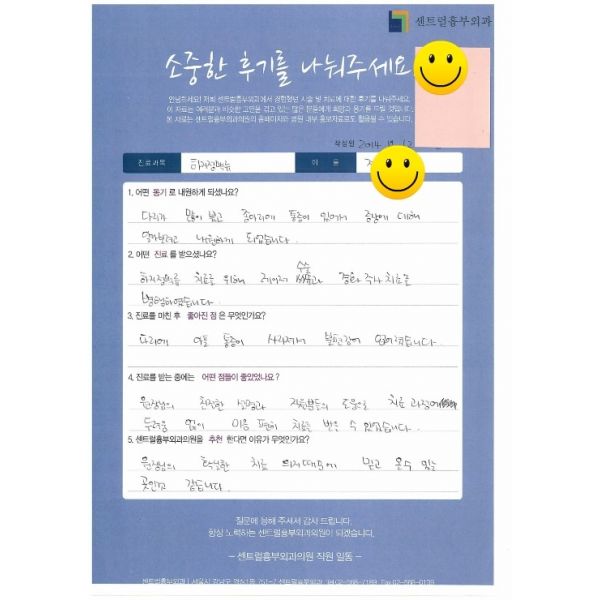 센트럴흉부외과
소중한 후기를 나눠주세요
안녕하세요! 저희 센트럴흉부외과에서 경험했던 시술 및 치료에 대한 후기를 나눠주세요.
이 자료는 여러분과 비슷한 고민을 겪고 있는 많은 분들에게 희망과 용기를 드릴 것입니다.
본 자료는 센트럴흉부외과의원의 홈페이지와 병원 내부 홍보자료로도 활용될 수 있습니다.
작성일 2014.
진료과목 하지정맥류 이 름
1. 어떤 동기로 내원하게 되셨나요?
다리가 많이 붓고 종아리에 통증이 있어서 증상에 대해
알아보려고 내원하게 되었습니다.
2. 어떤 진료를 받으셨나요?
수술
하지정맥류 치료를 위해 레이저 경화 주사 치료를
병행하였습니다.
3. 진료를 마친 후 좋아진 점은 무엇인가요?
다리에 아픈 통증이 사라져서 불편감이 없어졌습니다.
4. 진료를 받는 중에는 어떤 점들이 좋았었나요?
원장님의 친절한 설명과 직원분들의 도움으로 치료 과정에
두려움 없이 마음 편히 치료를 받을 수 있었습니다.
5. 센트럴흉부외과의원을 추천한다면 이유가 무엇인가요?
원장님의 확실한 치료 의지때문에 믿고 올수 있는
곳인것 같습니다.
질문에 응해 주셔서 감사 드립니다.
항상 노력하는 센트럴흉부외과의원이 되겠습니다.
– 센트럴흉부외과의원 직원 일동 –
센트럴흉부외과 | 서울시 강남구